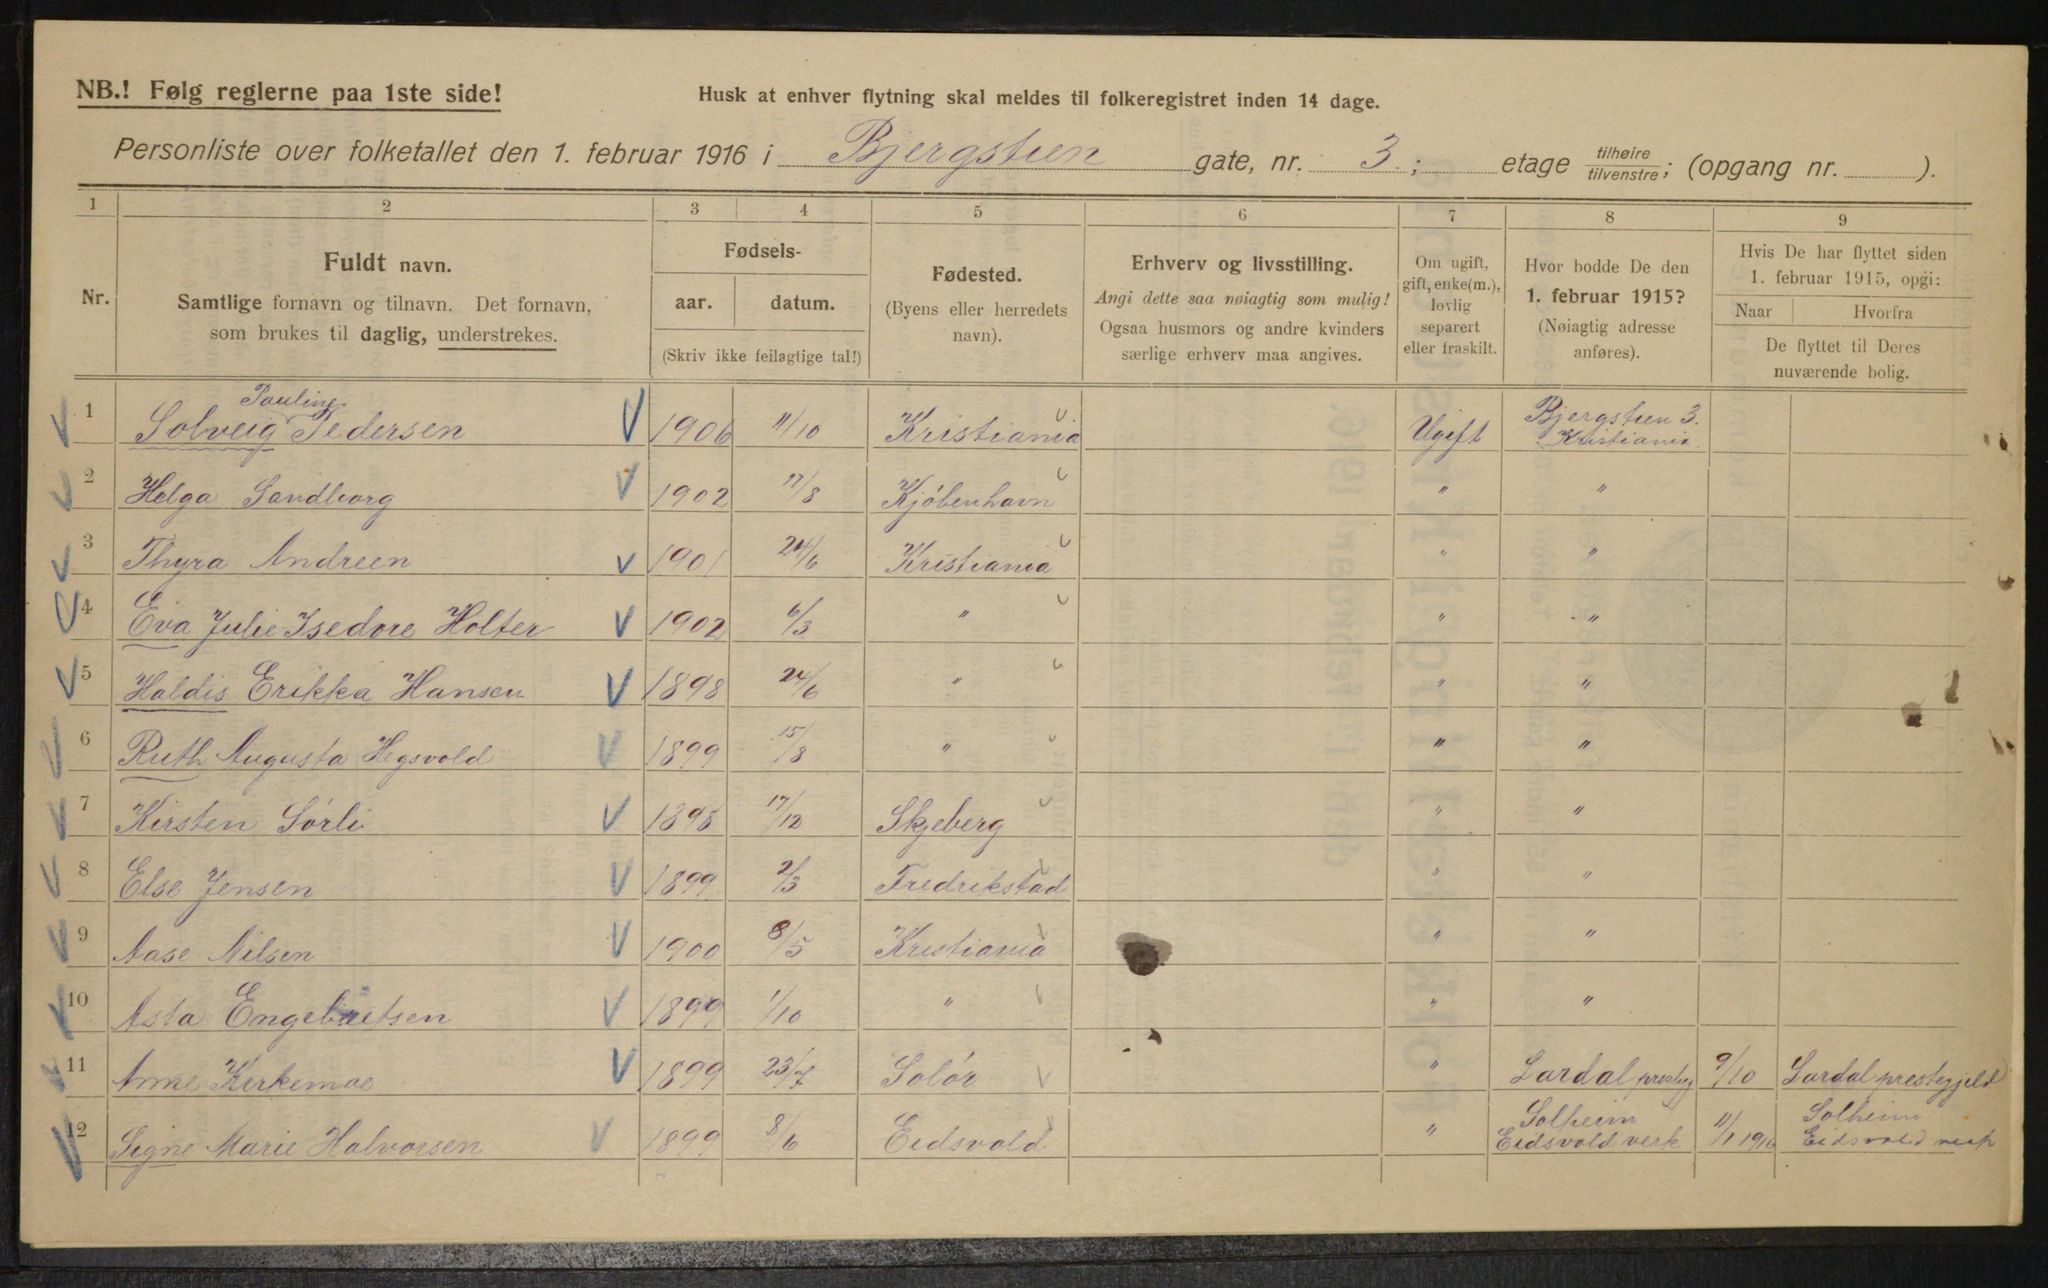 NB.! Følg reglerne paa 1ste side!
Husk at enhver flytning skal meldes til folkeregistret inden 14 dage.
Personliste over folketallet den 1. februar 1916 i Bjergstien gate, nr. 3. ; etage tilhøire/tilvenstre; (opgang nr. ).
1 2 3 4 5 6 7 8 9
Nr.
Fuldt navn.
Samtlige fornavn og tilnavn. Det fornavn,
som brukes til daglig, understrekes.
Fødsels-
aar. datum.
(Skriv ikke feilagtige tal!)
Fødested.
(Byens eller herredets
navn).
Erhverv og livsstilling.
Angi dette saa nøiagtig som mulig!
Ogsaa husmors og andre kvinders
særlige erhverv maa angives.
Om ugift,
gift, enke(m.),
lovlig
separert
eller fraskilt.
Hvor bodde De den
1. februar 1915?
(Nøiagtig adresse
anføres).
Hvis De har flyttet siden
1. februar 1915, opgi:
Naar Hvorfra
De flyttet til Deres
nuværende bolig.
1 Solveig Pauline Pedersen 1906 11/10 Kristiania Ugift Bjergstien 3. Kristiania
2 Helga Sandborg 1902 17/8 Kjöbenhavn " "
3 Thyra Andreen 1901 24/6 Kristiania " "
4 Eva Julie Isedore Holter 1902 6/3 " " "
5 Haldis Erikka Hansen 1898 24/6 " " "
6 Ruth Augusta Hegsvold 1899 15/8 " " "
7 Kirsten Sörli 1898 17/12 Skjeberg " "
8 Else Jensen 1899 2/3 Fredrikstad " "
9 Aase Nilsen 1900 8/5 Kristiania " "
10 Asta Engebretsen 1899 1/10 " " "
11 Anne Kirkemoe 1899 23/7 Solör " Lardal prestegj 9/10 Lardal prestegjeld
12 Signe Marie Halvorsen 1899 8/6 Eidsvold " Solheim Eidsvold verk 11/1 1916 Solheim Eidsvold verk